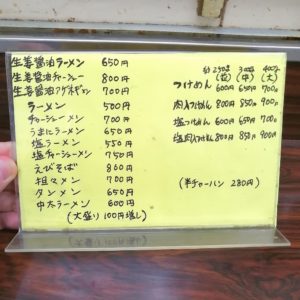 生姜醤油ラーメン 650円
生姜醤油チャーシュー 800円
生姜醤油 700円
ラーメン 500円
チャーシューメン 700円
うまにラーメン 650円
塩ラーメン 550円
塩チャーシューメン 750円
えびそば 800円
担々メン 700円
タンメン 650円
中太ラーメン 600円
(大盛り100円増し)
(並) (中) (大)
つけめん 600円 650円 700円
肉つけめん 800円 850円 900円
塩つけめん 600円 650円 700円
塩肉つけめん 800円 850円 900円
(半チャーハン 280円)